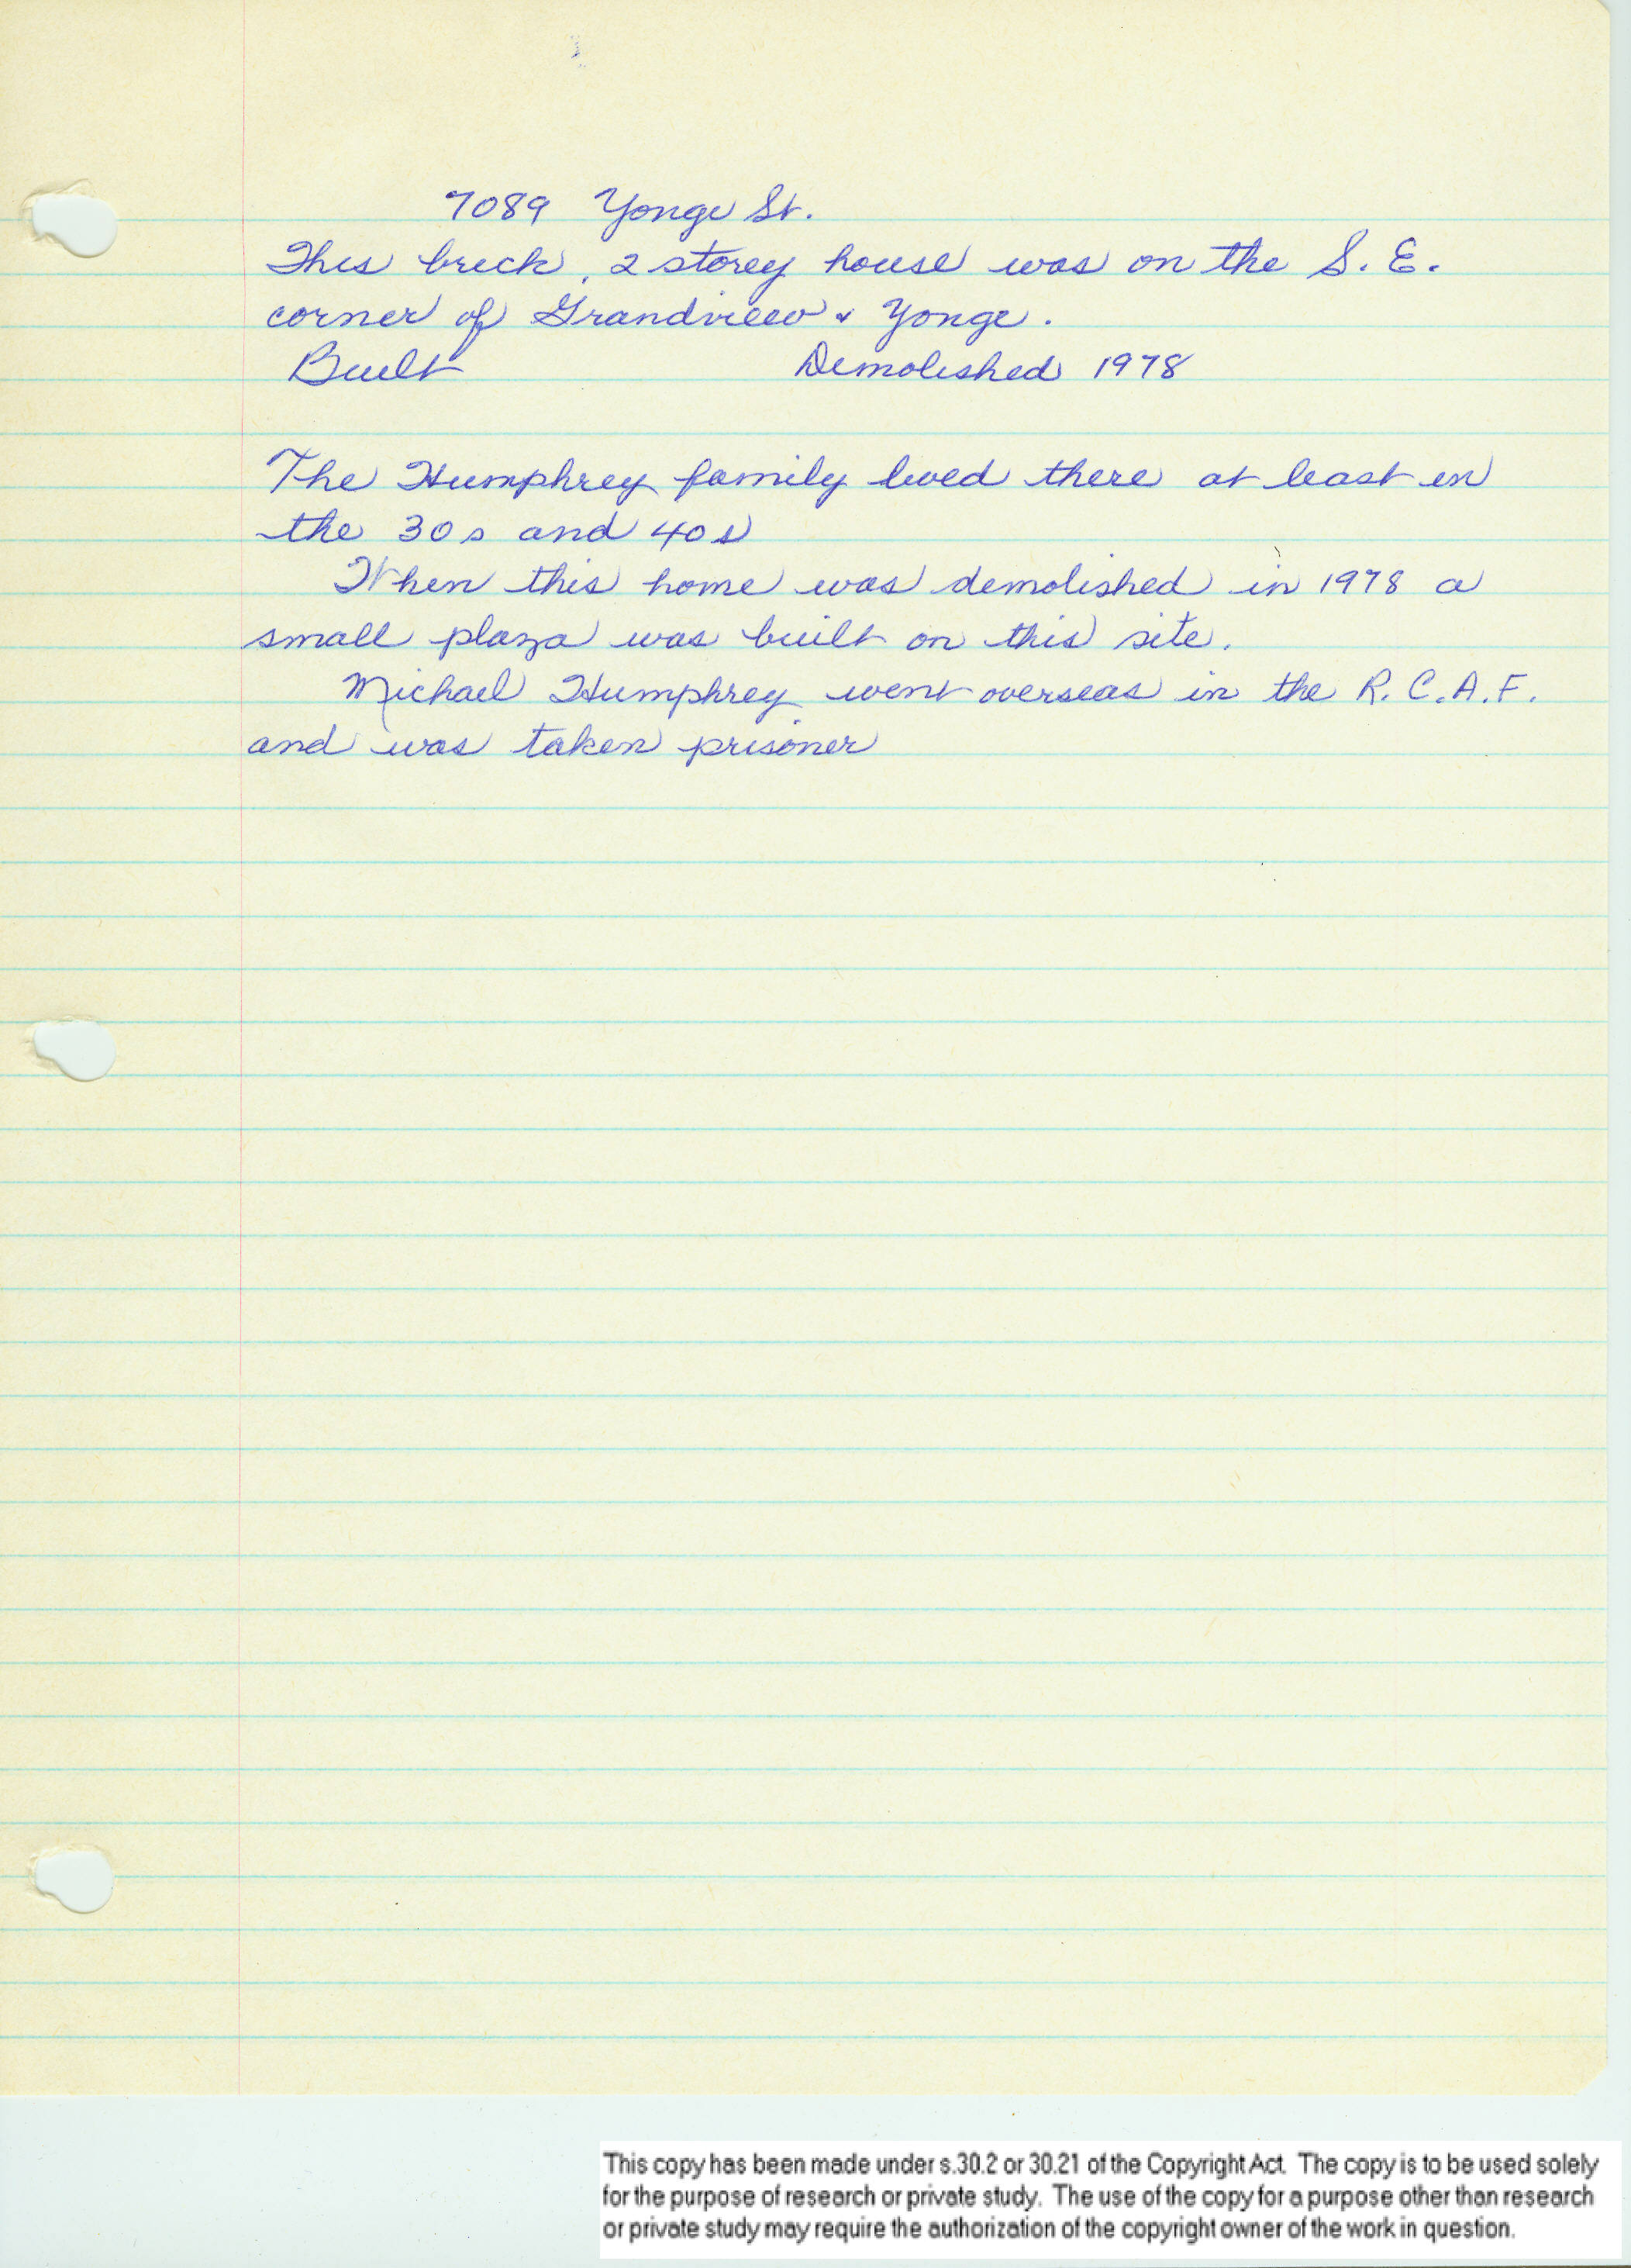 7089 Yonge St.
This brick, 2 storey house was on the S. E.
corner of Grandview & Yonge.
Built Demolished 1978
The Humphrey family lived there at least in
the 30s and 40s
When this home was demolished in 1978 a
small plaza was built on this site.
Michael Humphrey went overseas in the R.C.A.F.
and was taken prisoner
This copy has been made under s.30.2 or 30.21 of the Copyright Act. The copy is to be used solely
for the purpose of research or private study. The use of the copy for a purpose other than research
or private study may require the authorization of the copyright owner of the work in question.